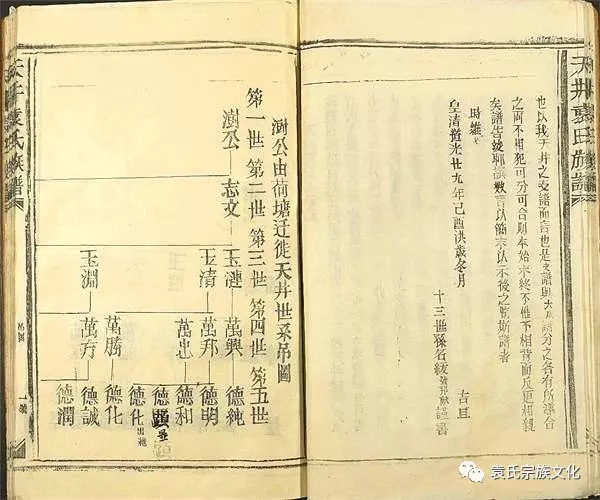 天井袁氏族譜
也以我天井之支譜而言也是支譜與大譜分之各有所遵合
之兩不相犯可分可合則本始末終不惟不相背而反更相親
矣譜告竣聊誌數言以簡末以示後之覽斯譜者
時維
皇清道光廿九年己酉洪歲冬月
吉旦
十三世孫名
澍公由荷塘迁徙天井世系吊圖
第一世 第二世 第三世 第四世 第五世
澍公 志文 玉漣 萬興 德純
玉清 萬邦 德明
萬忠 德和
德化 出繼
萬勝 德化
玉淵 萬方 德誠
德潤
天井袁氏族譜
吊圖
袁氏宗族文化